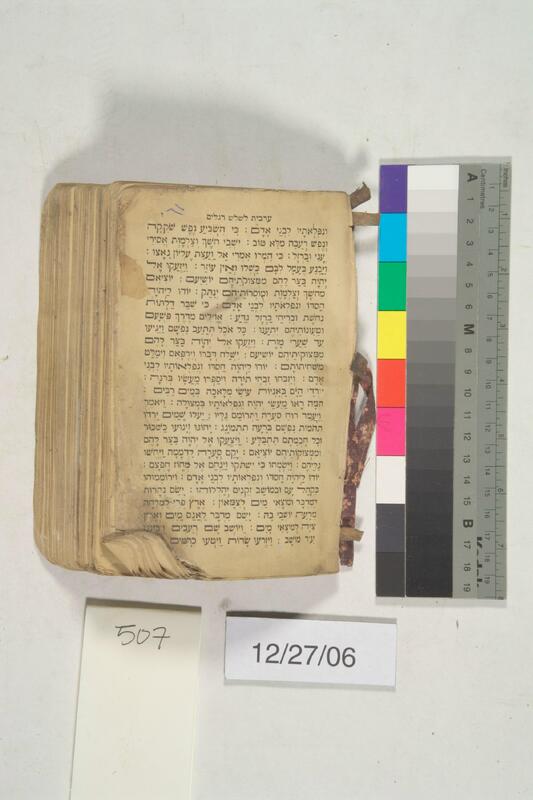 ערבית לשלש רגלים
ונפלאותיו לבני אדם : כי השביע נפש שקקה
ונפש רעבה מלא טוב : יושבי חשך וצלמות אסירי
עני וברזל : כי המרו אמרי אל ועצת עליון נאצו :
ויכנע בעמל לבם כשלו ואין עוזר : ויזעקו אל
יהוה בצר להם ממצוקותיהם יושיעם : יוציאם
מחשך וצלמות ומוסרותיהם ינתק : יודו ליהוה
חסדו ונפלאותיו לבני אדם : כי שבר דלתות
נחשת ובריחי ברזל גדע : אוילים מדרך פשעם
ומעונותיהם יתענו : כל אכל תתעב נפשם ויגיעו
עד שערי מות : ויזעקו אל יהוה בצר להם
ממצוקותיהם יושיעם : ישלח דברו וירפאם וימלט
משחיתותם : יודו ליהוה חסדו ונפלאותיו לבני
אדם : ויזבחו זבחי תודה ויספרו מעשיו ברנה :
יורדי הים באניות עושי מלאכה במים רבים
המה ראו מעשי יהוה ונפלאותיו במצולה : ויאמר
ויעמד רוח סערה ותרומם גליו : יעלו שמים ירדו
תהומות נפשם ברעה תתמוגג : יחוגו וינועו כשכור
וכל חכמתם תתבלע : ויצעקו אל יהוה בצר להם
וממצוקותיהם יוציאם : יקם סערה לדממה ויחשו
גליהם : וישמחו כי ישתקו וינחם אל מחוז חפצם :
יודו ליהוה חסדו ונפלאותיו לבני אדם : וירוממוהו
בקהל עם ובמושב זקנים יהללוהו : ישם נהרות
למדבר ומצאי מים לצמאון : ארץ פרי למלחה
מרעת יושבי בה : ישם מדבר לאגם מים וארץ
ציה למצאי מים : ויושב שם רעבים ויכוננו
עיר מושב : ויזרעו שדות ויטעו כרמים
507
12/27/06
Inches
Centimetres
A
1
2
3
4
5
6
M
8
9
10
11
12
13
14
15
B
17
18
19